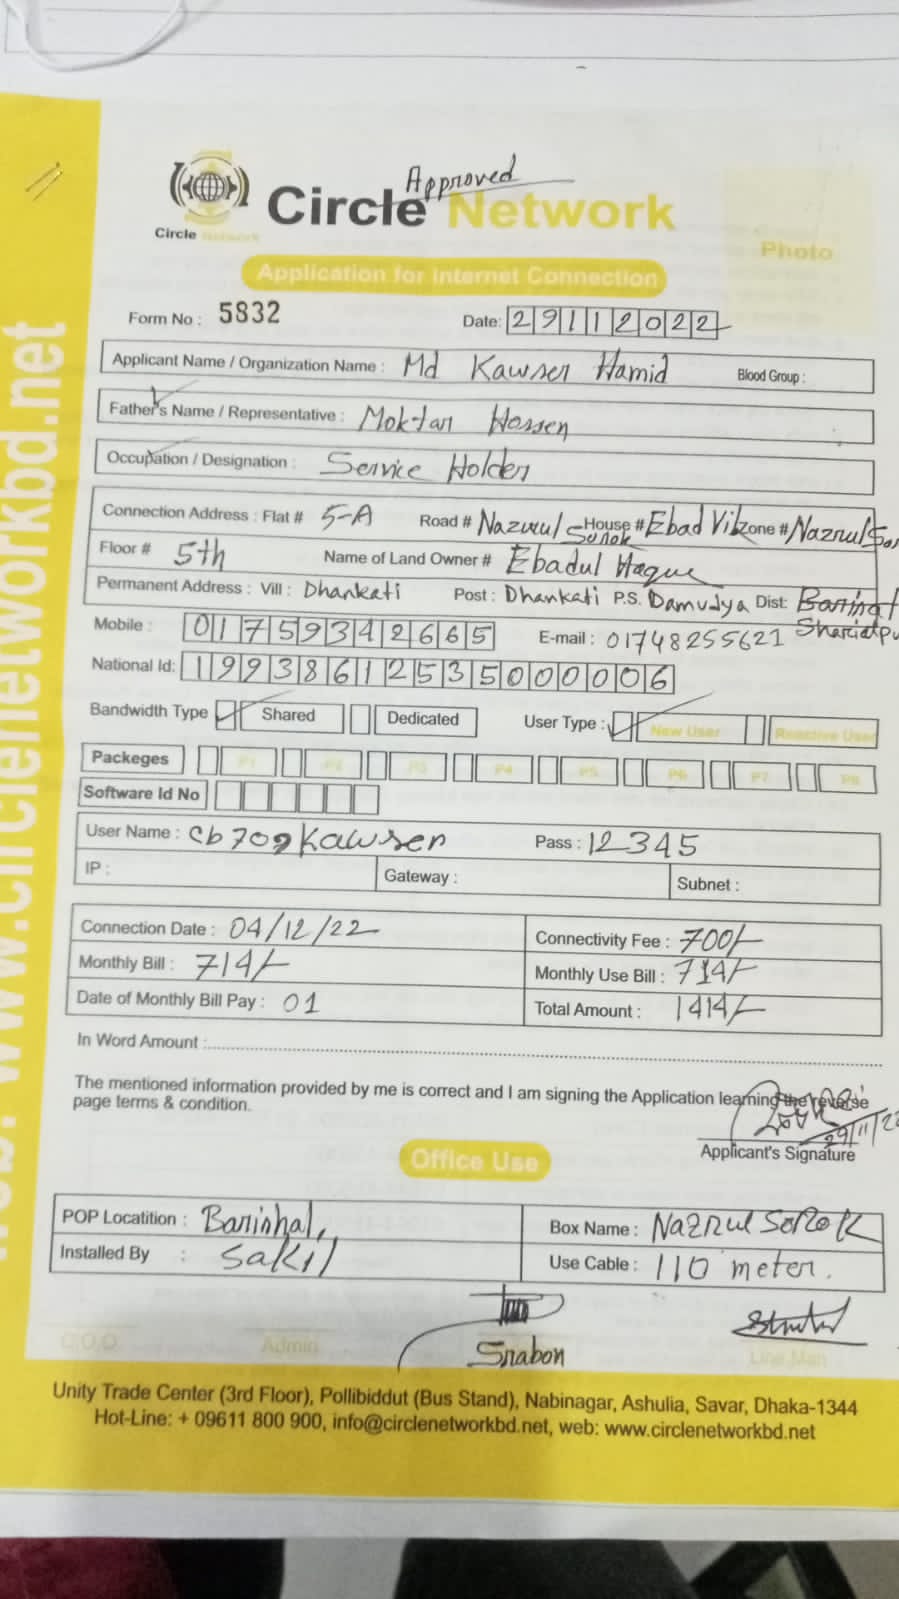 Approved
Circle Network
Circle Network
Photo
Application for Internet Connection
Form No : 5832
Date: 29112022
Applicant Name / Organization Name : Md Kawser Hamid Blood Group :
Father's Name / Representative : Moktar Hossen
Occupation / Designation : Service Holder
Connection Address : Flat # 5-A Road # Nazrul Sorok House # Ebad Zone # Nazrul
Floor # 5th Name of Land Owner # Ebadul Haque
Permanent Address : Vill : Dhankati Post : Dhankati P.S. Damudya Dist:
Mobile : 01759342665 E-mail : 01748255621
National Id: 19938612535000006
Bandwidth Type Shared Dedicated User Type : New User Reactive User
Packeges P1 P2 P3 P4 P5 P6 P7 P8
Software Id No
User Name : cb709kawser Pass : 12345
IP : Gateway : Subnet :
Connection Date : 04/12/22 Connectivity Fee : 700/-
Monthly Bill : 714/- Monthly Use Bill : 714/-
Date of Monthly Bill Pay : 01 Total Amount : 1414/-
In Word Amount :
The mentioned information provided by me is correct and I am signing the Application learning the reverse
page terms & condition.
29/11/22
Applicant's Signature
Office Use
POP Locatition : Barinhal, Box Name : Nazrul Sorok
Installed By : Sakil Use Cable : 110 meter.
Srabon
C.O.O Admin Line Man
Unity Trade Center (3rd Floor), Pollibiddut (Bus Stand), Nabinagar, Ashulia, Savar, Dhaka-1344
Hot-Line: + 09611 800 900, info@circlenetworkbd.net, web: www.circlenetworkbd.net
www.circlenetworkbd.net